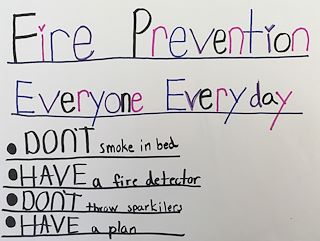 Fire Prevention
Everyone Everyday
• DON'T smoke in bed
• HAVE a fire detector
• DON'T throw sparkilers
• HAVE a plan